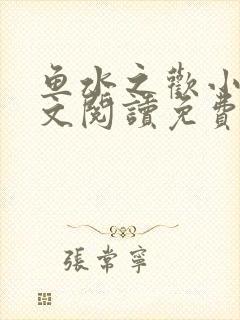 魚水之歡小
文閱讀免費
張常寧